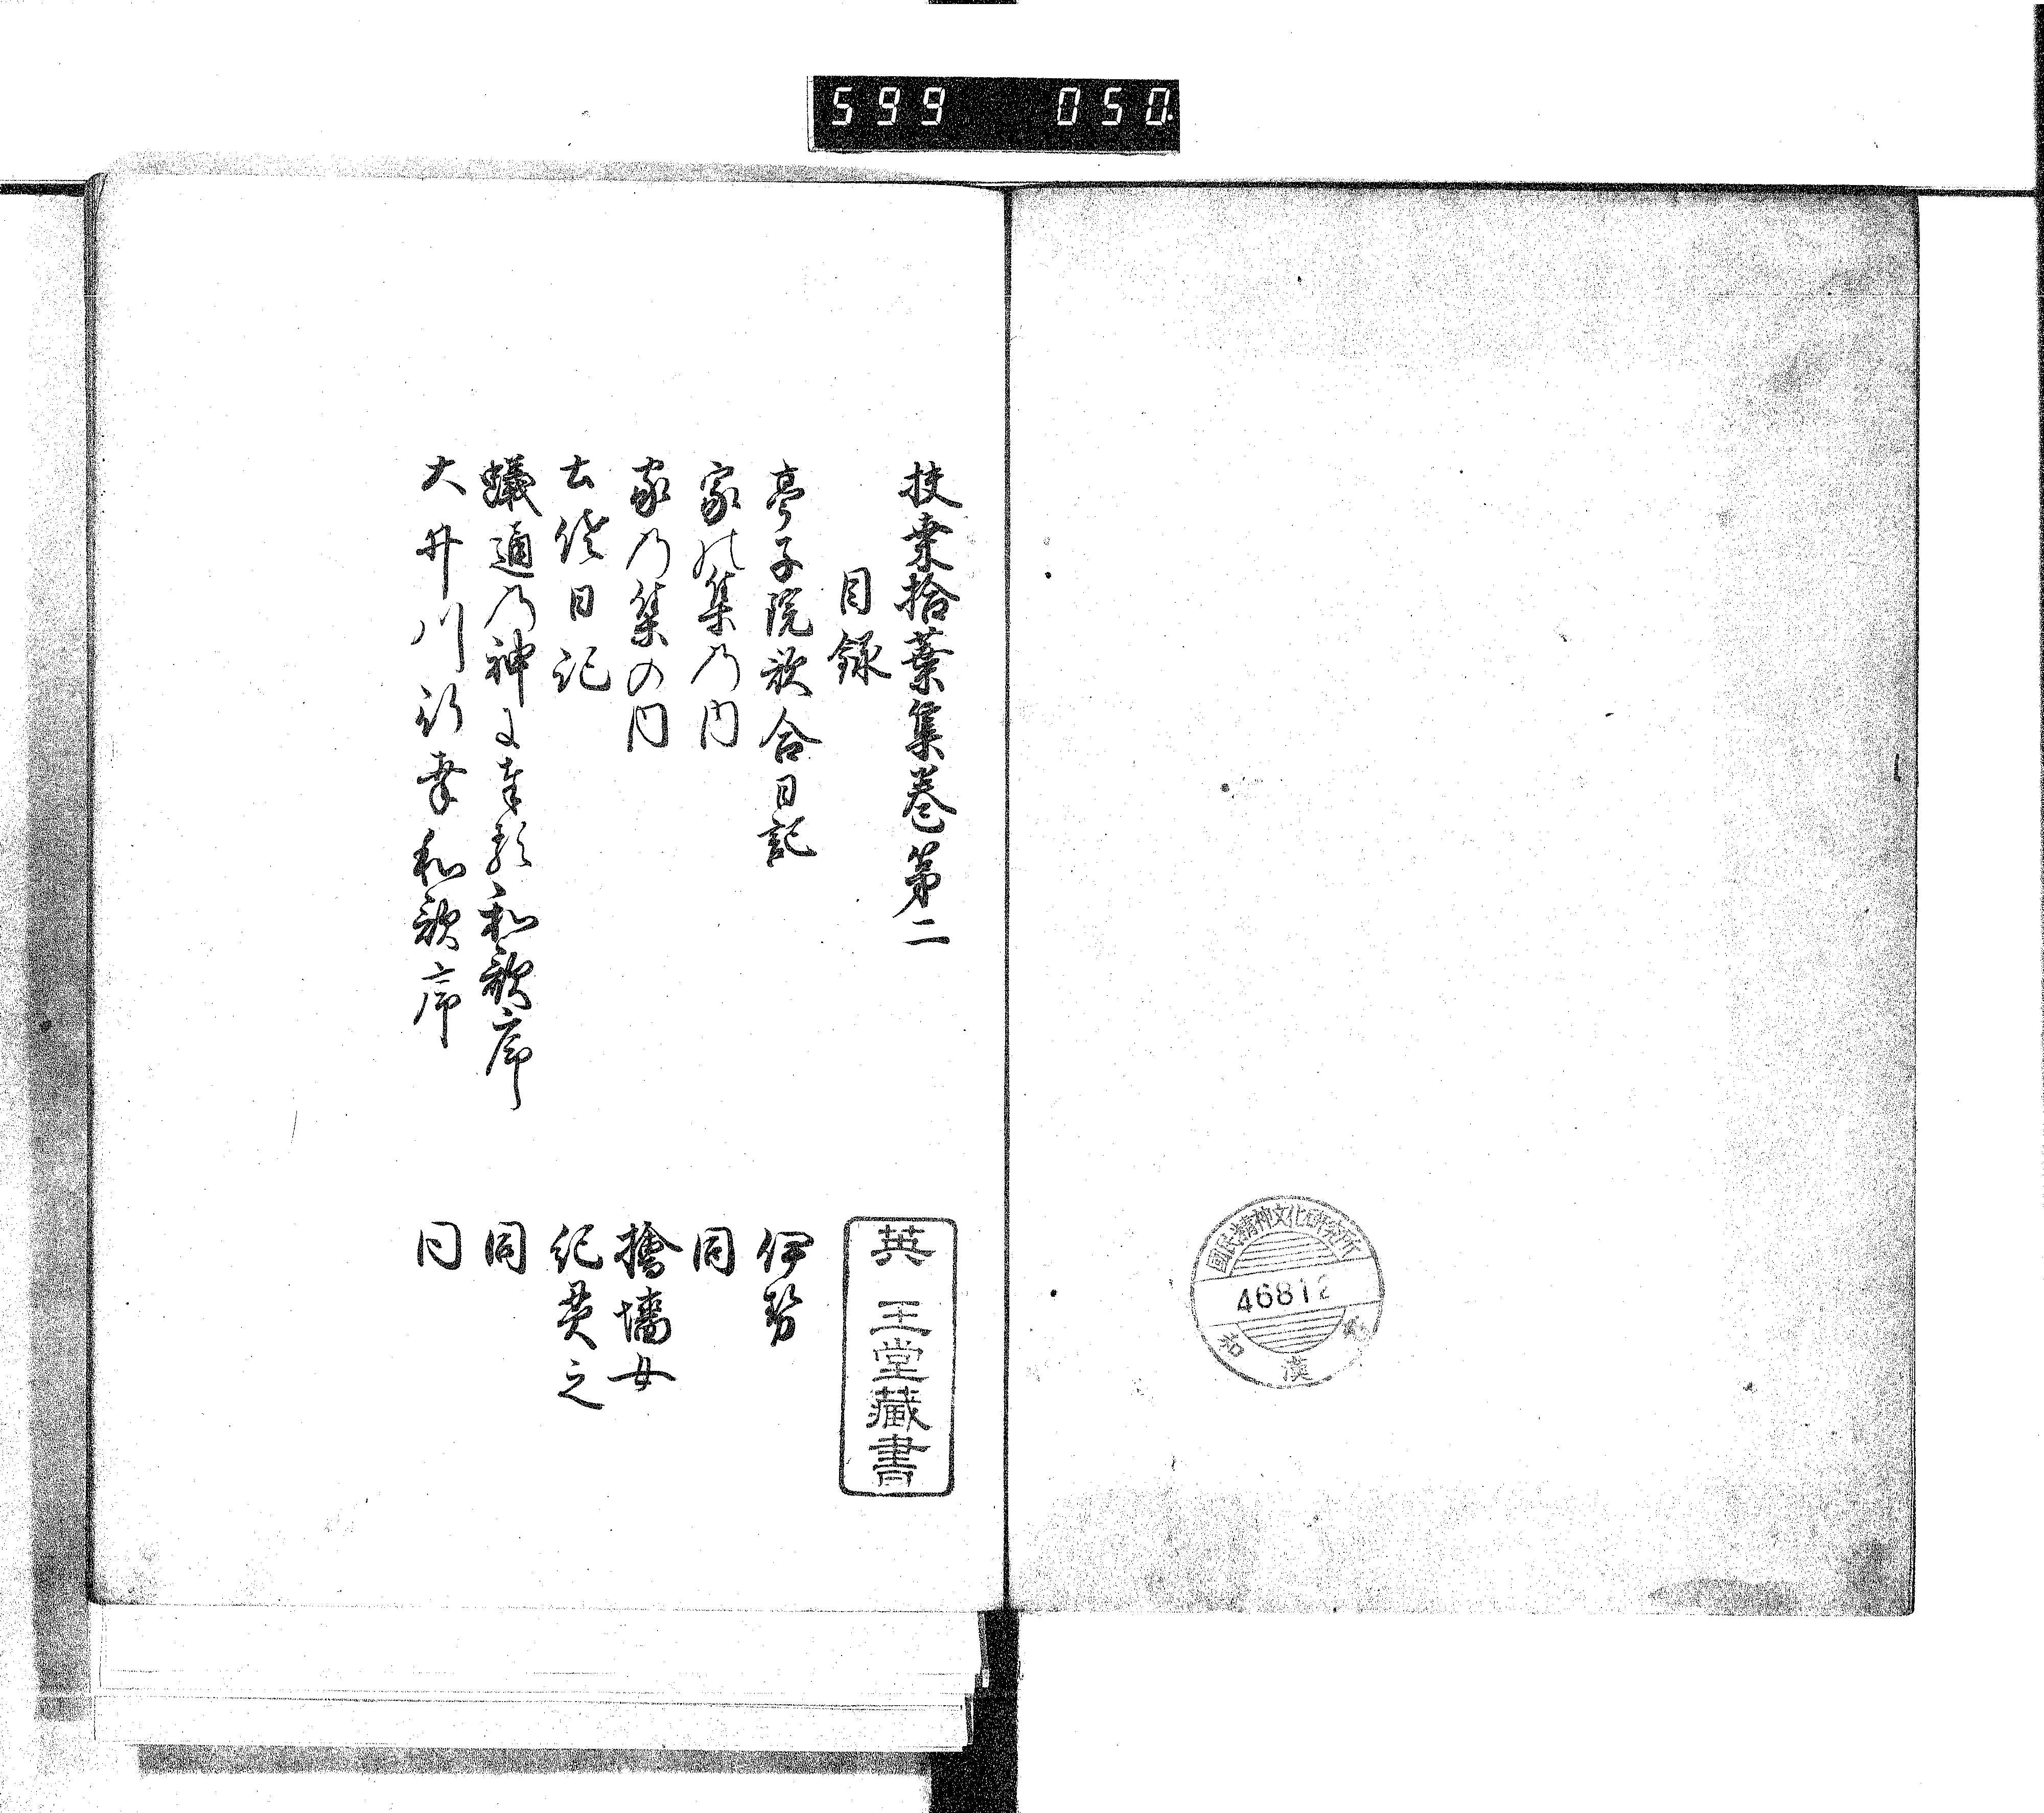 599 050
扶桒拾葉集巻第二
目録
亭子院歌合日記 伊勢
家の集乃内 同
家乃集の内 檜墻女
土佐日記 紀貫之
蟻通乃神に奉る和歌序 同
大井川行幸和歌序 同
英王堂藏書
國民精神文化研究所
46812
和漢